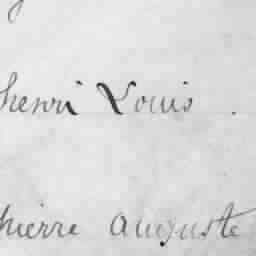 henri Louis .
pierre auguste